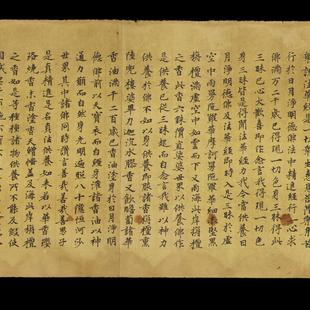 行於日月淨明德佛法中精進經行一心求
佛滿万二千歲已得現一切色身三昧得此
三昧已心大歡喜即作念言我得現一切色
身三昧皆是得聞法華經力我今當供養日
月淨明德佛及法華經即時入是三昧於虛
空中雨曼陀羅華摩訶曼陀羅華細末堅黑
栴檀滿虛空中如雲而下又雨海此岸栴檀
之香此香六銖價直娑婆世界以供養佛作是
供養已從三昧起而自念言我雖以神力
供養於佛不如以身供養即服諸香栴檀薰
陸兜樓婆畢力迦沉水膠香又飲瞻蔔諸華
香油滿千二百歲已香油塗身於日月淨明
德佛前以天寶衣而自纏身灌諸香油以神
通力願而自然身光明遍照八十億恒河沙
世界其中諸佛同時讚言善哉善哉善男子
是真精進是名真法供養如來若以華香瓔
珞燒香末香塗香天繒幡蓋及海此岸栴檀
之香如是等種種諸物供養所不能及假使